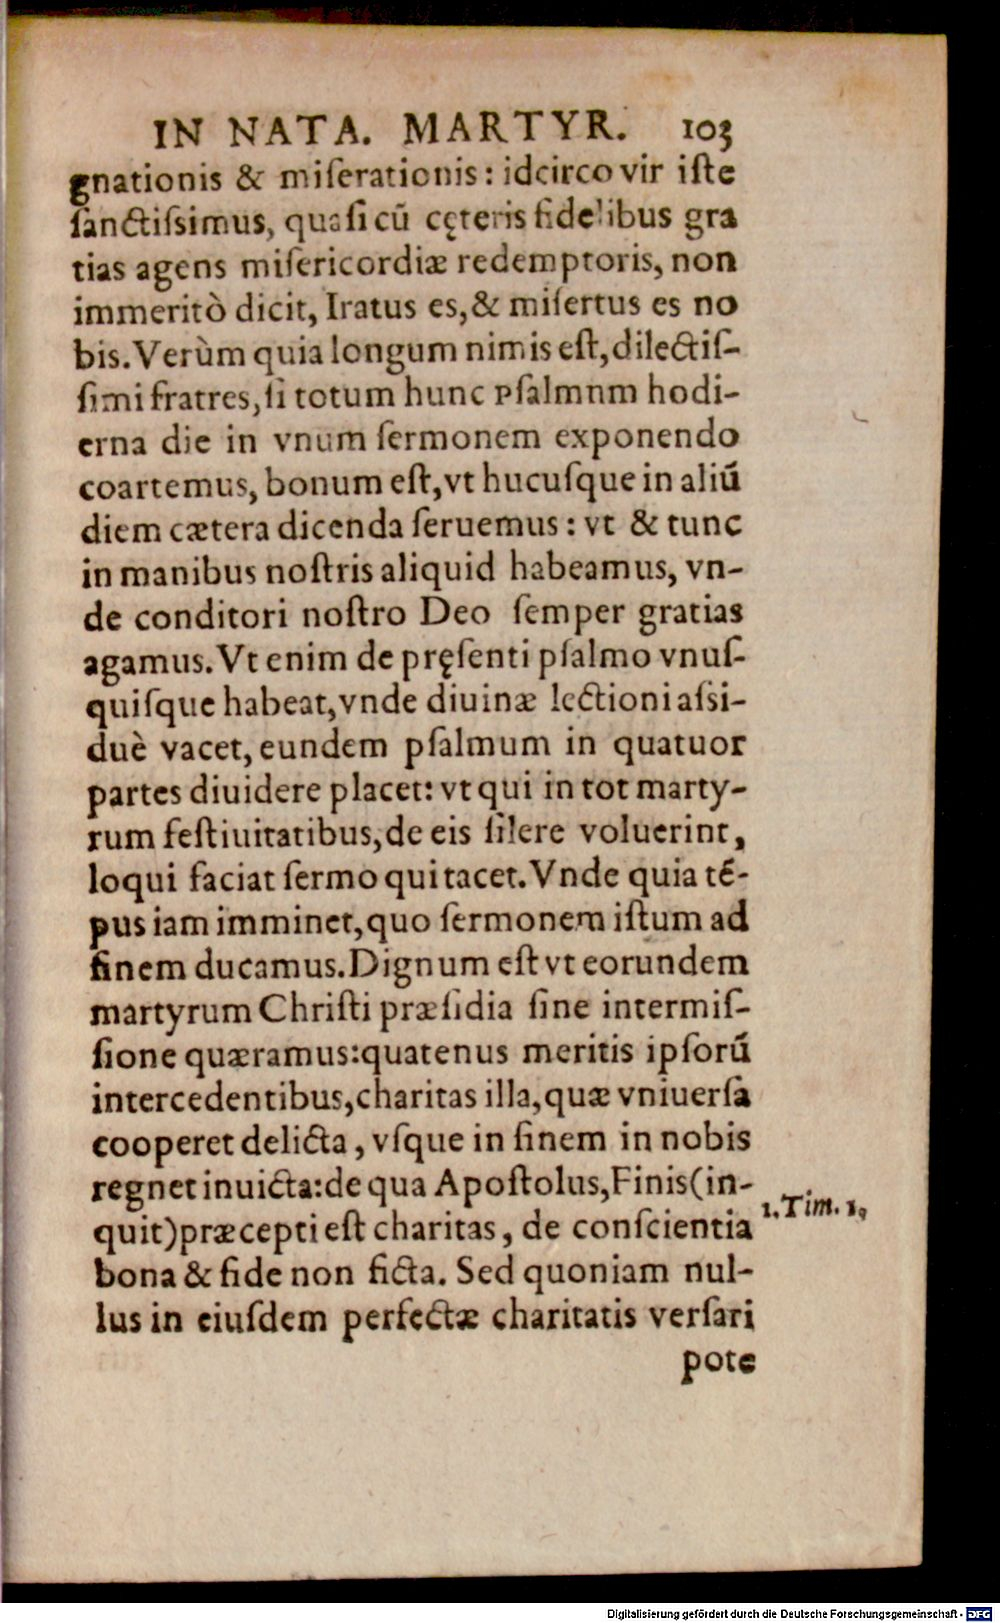 IN NATA. MARTYR. 103
gnationis & miſerationis: idcirco vir iſte
ſanctiſsimus, quaſi cū cęteris fidelibus gra
tias agens miſericordiæ redemptoris, non
immeritò dicit, Iratus es, & miſertus es no
bis. Verùm quia longum nimis eſt, dilectiſ-
ſimi fratres, ſi totum hunc Pſalmnm hodi-
erna die in vnum ſermonem exponendo
coartemus, bonum eſt, vt hucuſque in aliū
diem cætera dicenda ſeruemus: vt & tunc
in manibus noſtris aliquid habeamus, vn-
de conditori noſtro Deo ſemper gratias
agamus. Vt enim de pręſenti pſalmo vnuſ-
quiſque habeat, vnde diuinæ lectioni aſsi-
duè vacet, eundem pſalmum in quatuor
partes diuidere placet: vt qui in tot marty-
rum feſtiuitatibus, de eis ſilere voluerint,
loqui faciat ſermo qui tacet. Vnde quia tē-
pus iam imminet, quo ſermonem iſtum ad
finem ducamus. Dignum eſt vt eorundem
martyrum Chriſti præſidia ſine intermiſ-
ſione quæramus: quatenus meritis ipſorū
intercedentibus, charitas illa, quæ vniuerſa
cooperet delicta, vſque in finem in nobis
regnet inuicta: de qua Apoſtolus, Finis (in-
quit) præcepti eſt charitas, de conſcientia
1. Tim. 1.
bona & fide non ficta. Sed quoniam nul-
lus in eiuſdem perfectæ charitatis verſari
pote
Digitalisierung gefördert durch die Deutsche Forschungsgemeinschaft - DFG